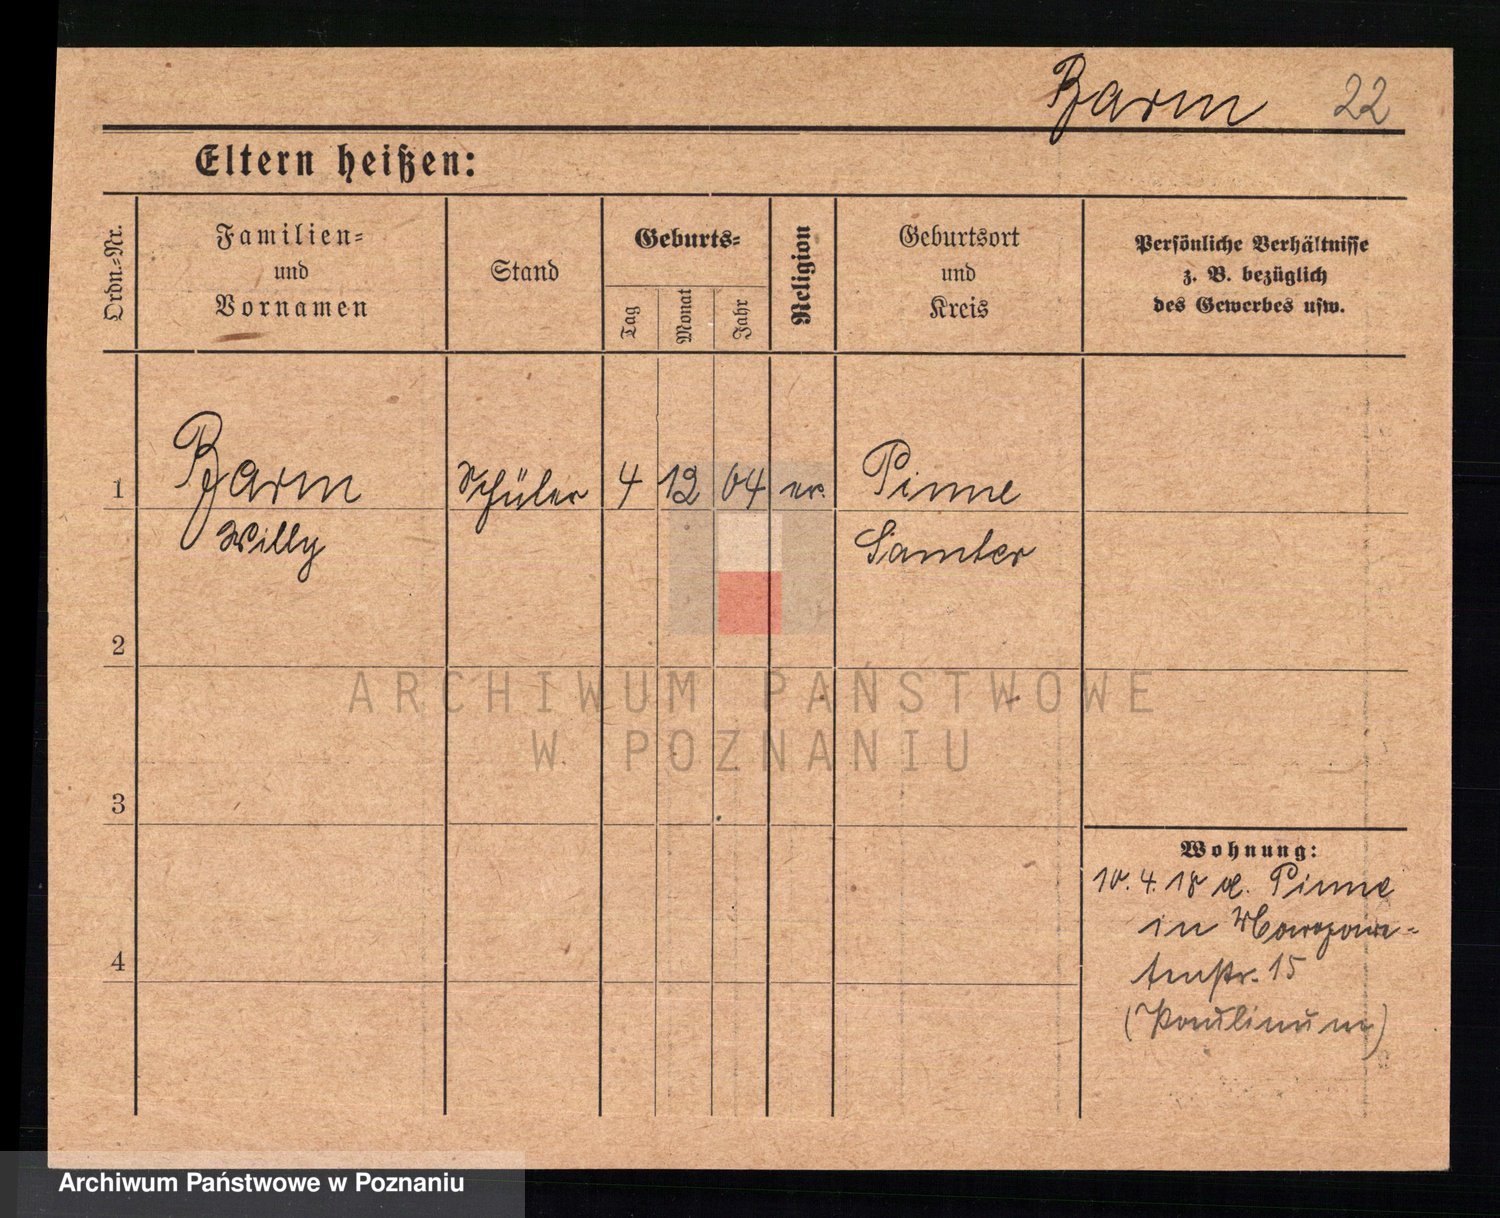 Barm 22
Eltern heißen:
Ordn.-Nr.
Familien-
und
Vornamen
Stand
Geburts-
Tag
Monat
Jahr
Religion
Geburtsort
und
Kreis
Persönliche Verhältnisse
z. B. bezüglich
des Gewerbes usw.
1 Barm Schüler 4 12 04 ev. Pinne
Willy Samter
2
3
4
Wohnung:
10.4.18 v. Pinne
in
15
(Paulinum)
ARCHIWUM PAŃSTWOWE
W POZNANIU
Archiwum Państwowe w Poznaniu